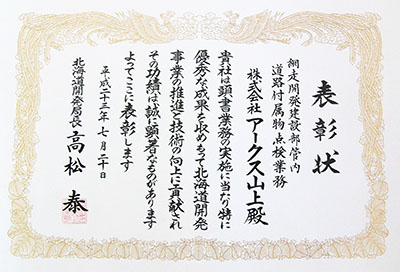 表彰状
網走開発建設部管内
道路付属物点検業務
株式会社アークス山上殿
貴社は頭書業務の実施に当たり特に
優秀な成果を収めもって北海道開発
事業の推進と技術の向上に貢献され
その功績は誠に顕著なものがあります
よってここに表彰します
平成二十三年七月二十日
北海道開発局長 高松泰